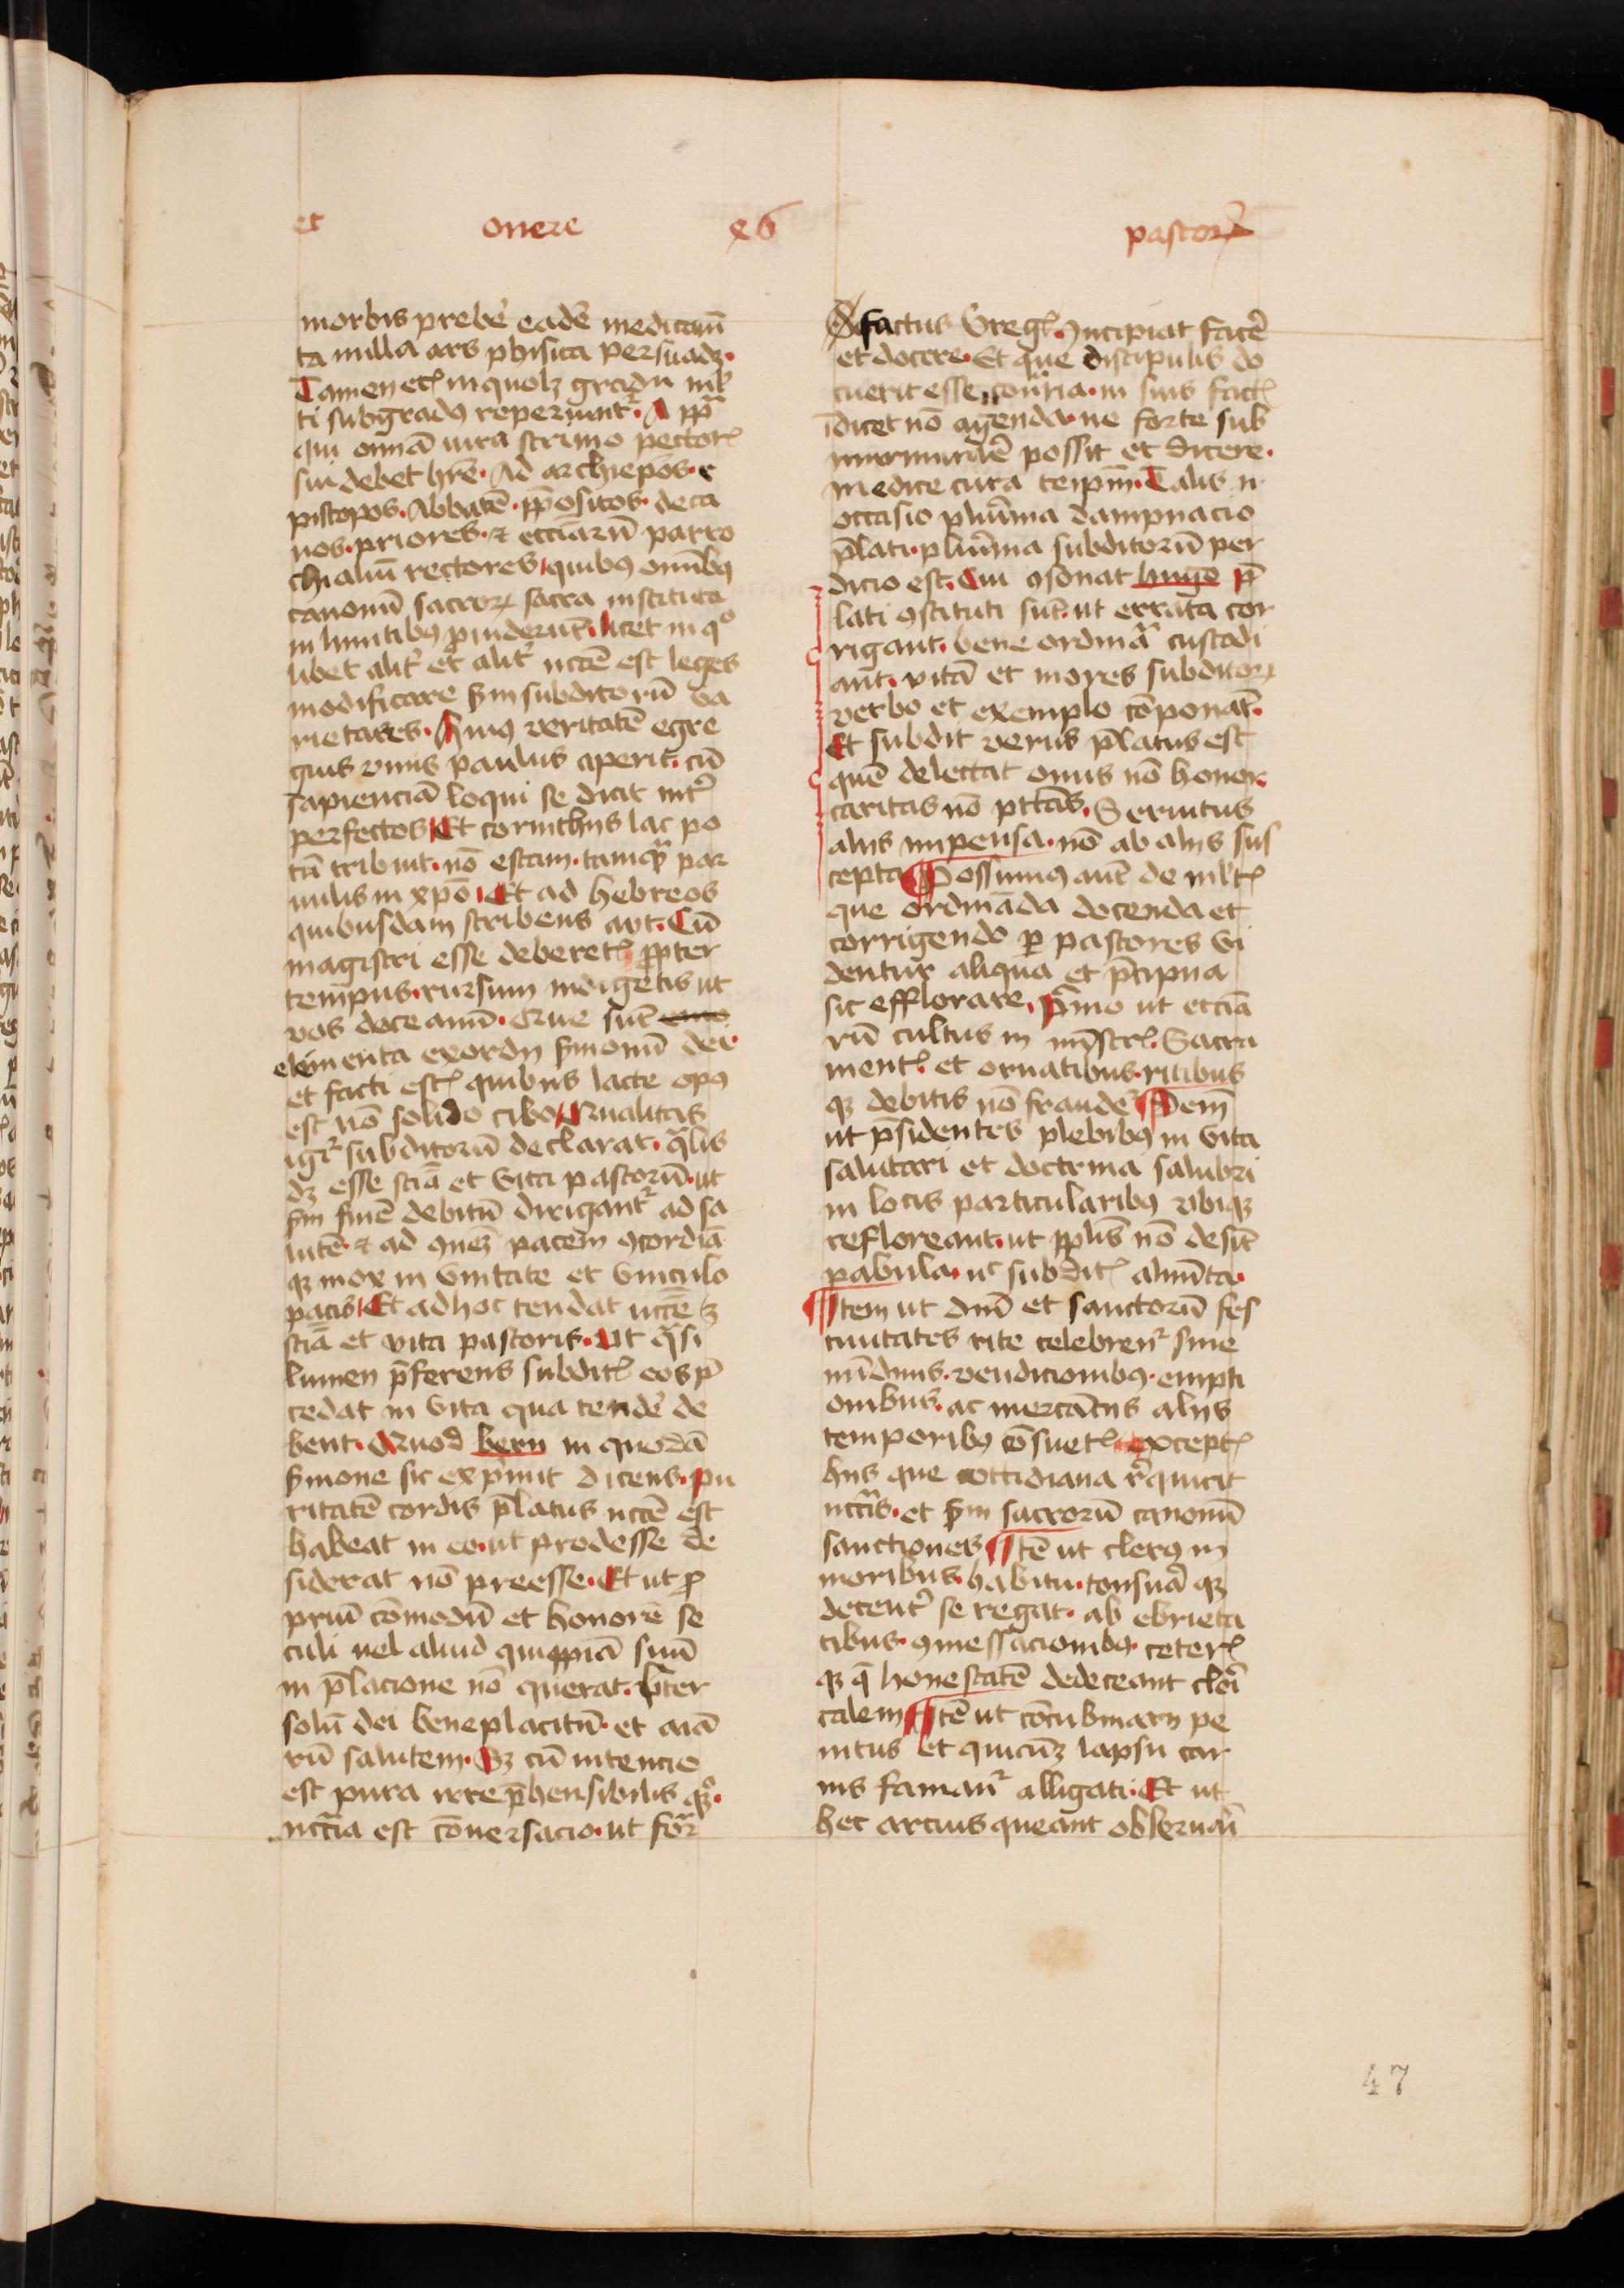 et onere x6 pastorꝝ
morbis preber̄ eadē medicam̄
ta nulla ars phisica persuadꝫ.
Tamen etꝭ in quolꝫ gradu ml̄
ti subgradꝰ reperiunt᷑. A pp̄a
qui omnā iura scrinio pectorꝭ
sui debet hr̄e. Ad archiep̄os. e
piscopos. Abbatē. pp̄ositos. deca
nos. priores. ⁊ eccīarū parro
chialiū rectores quibꝰ omībꝰ
canonū sacroꝝ sacra instituta
in limitibꝰ ꝓuiderūt. licet in qͦ
libet alit᷑ et alit᷑ nccē est leges
modificare sm̄ subditorū va
rietates. Huiꝰ veritatē egre
gius vnus paulus aperit. cū
sapienciā loqui se dicit int᷑
perfectos Et corinthijs lac po
tū tribuit. nō escam. tamqᷓ par
uulis in xp̄o. Et ad hebreos
quibusdam scribens ayt. Cū
magistri esse deberetꝭ ꝓpter
tempus. rursum indigetis ut
vos doceamī. Que sūt
elementa exordij s̄monū dei.
et facti estꝭ quibus lacte opꝰ
est nō solido cibo Qualitas
igr᷑ subditorū declarat. qᷓlis
dꝫ esse scīa et vita pastorū. ut
sm̄ finē debitū dirigant᷑ ad sa
lutē. ⁊ ad ꝯuēꝫ pacem ꝯcordiā
qꝫ mox in vnitate et vinculo
pacis Et ad hoc tendat nccē ꝫ
scīa et vita pastoris. Ut qᷓsi
lumen p̄ferens subditꝭ eos p̄
cedat in vita qua tender̄ de
bent. Quod bern in quodā
s̄mone sic exp̄mit dicens. pu
ritatē cordis p̄latus nccē est
habeat in eo. ut prodesse de
siderat nō preesse. Et ut ꝓ
priū cōmodū et honorē se
culi uel aliud quippiā suū
in p̄lacione nō querat. p̄ter
solū dei beneplacitū. et aīa
rū salutem. Sꝫ cū intencio
est pura irrep̄hensibilis qꝫ.
nccīa est cōuersacio. ut for̄
factus Gregꝭ. Incipiat facer̄
et docere. Et que discipulis do
cuerit esse cōt᷑ria. in suis factꝭ
īdicet nō agenda. ne forte sub
murmurādē possit et dicere.
medice cura teip̄m. Talis n.
occasio pluīma dampnacio
p̄lati. pluīma subditorū per
dicio est. Cui ꝯsonat hugo p̄
lati ꝯstituti sūt. ut errata cor
rigant. bene ordinata custodi
ant. vitā et mores subditoꝝ
verbo et exemplo cōponāt.
Et subdit verus p̄latus est
quē delectat onus nō honor.
caritas nō ptt̄as. Seruitus
alijs impensa. nō ab alijs sus
cepta Possumꝰ aūt de ml̄tꝭ
que ordināda docenda et
corrigendo ꝑ pastores vi
dentur aliqua et p̄cipua
sic efflorare. Primo ut eccīa
rū cultus in mīstrꝭ. Sacra
mentꝭ. et ornatibus. ritibus
qꝫ debitis nō fraudet᷑ Item
ut p̄sidentes plebibꝰ in vita
salutari et doctrina salubri
in locis particularibꝰ vbiqꝫ
refloreant. ut pp̄lis nō desīt
pabula. nͨ subditꝭ alimēta.
Item ut dnī et sanctorū fes
tiuitates rite celebrent᷑ sine
nūdinis. vendicionibꝰ. empti
onibus. ac mercācijs alijs
temporibꝰ cōsuetꝭ exceptꝭ
hijs que cottidiana req̄uirit
ncc̄itas. et sm̄ sacrorū canonū
sanctiones Itē ut clerꝰ in
moribus. habitu. tonsura qꝫ
decent᷑ se regat. ab ebrieta
tibus. ꝯmessacionibꝰ. ceterꝭ
qꝫ q̄ honestatē dedeceant cleri
calem Itē ut cōcubinarij pe
nitus et quicūꝫ lapsu car
nis famant᷑ alligati. Et ut
hec arcius queant obseruari
47